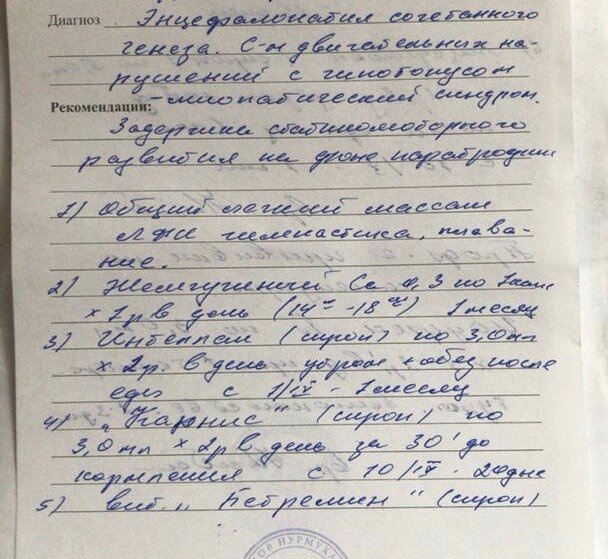 Диагноз Энцефалопатия сочетанного
генеза. С-м двигательных на-
рушений с гипотонусом
Рекомендации: -миопатический синдром.
Задержка статикомоторного
развития на фоне
1) Общий легкий массаж
ЛФК гимнастика, плава-
ние.
2) Жемчужный Са Д3 по 1 капс
× 1 р в день (14 -18 ) 1 месяц
3) (сироп) по 3,0 мл
× 2 р в день утром + обед после
еды с 1/IV - 1 месяц
4) „Карнис" (сироп) по
3,0 мл × 2 р в день за 30' до
кормления с 10/IV - 20 дне
5) вит. „ " (сироп)
НУРМУХА